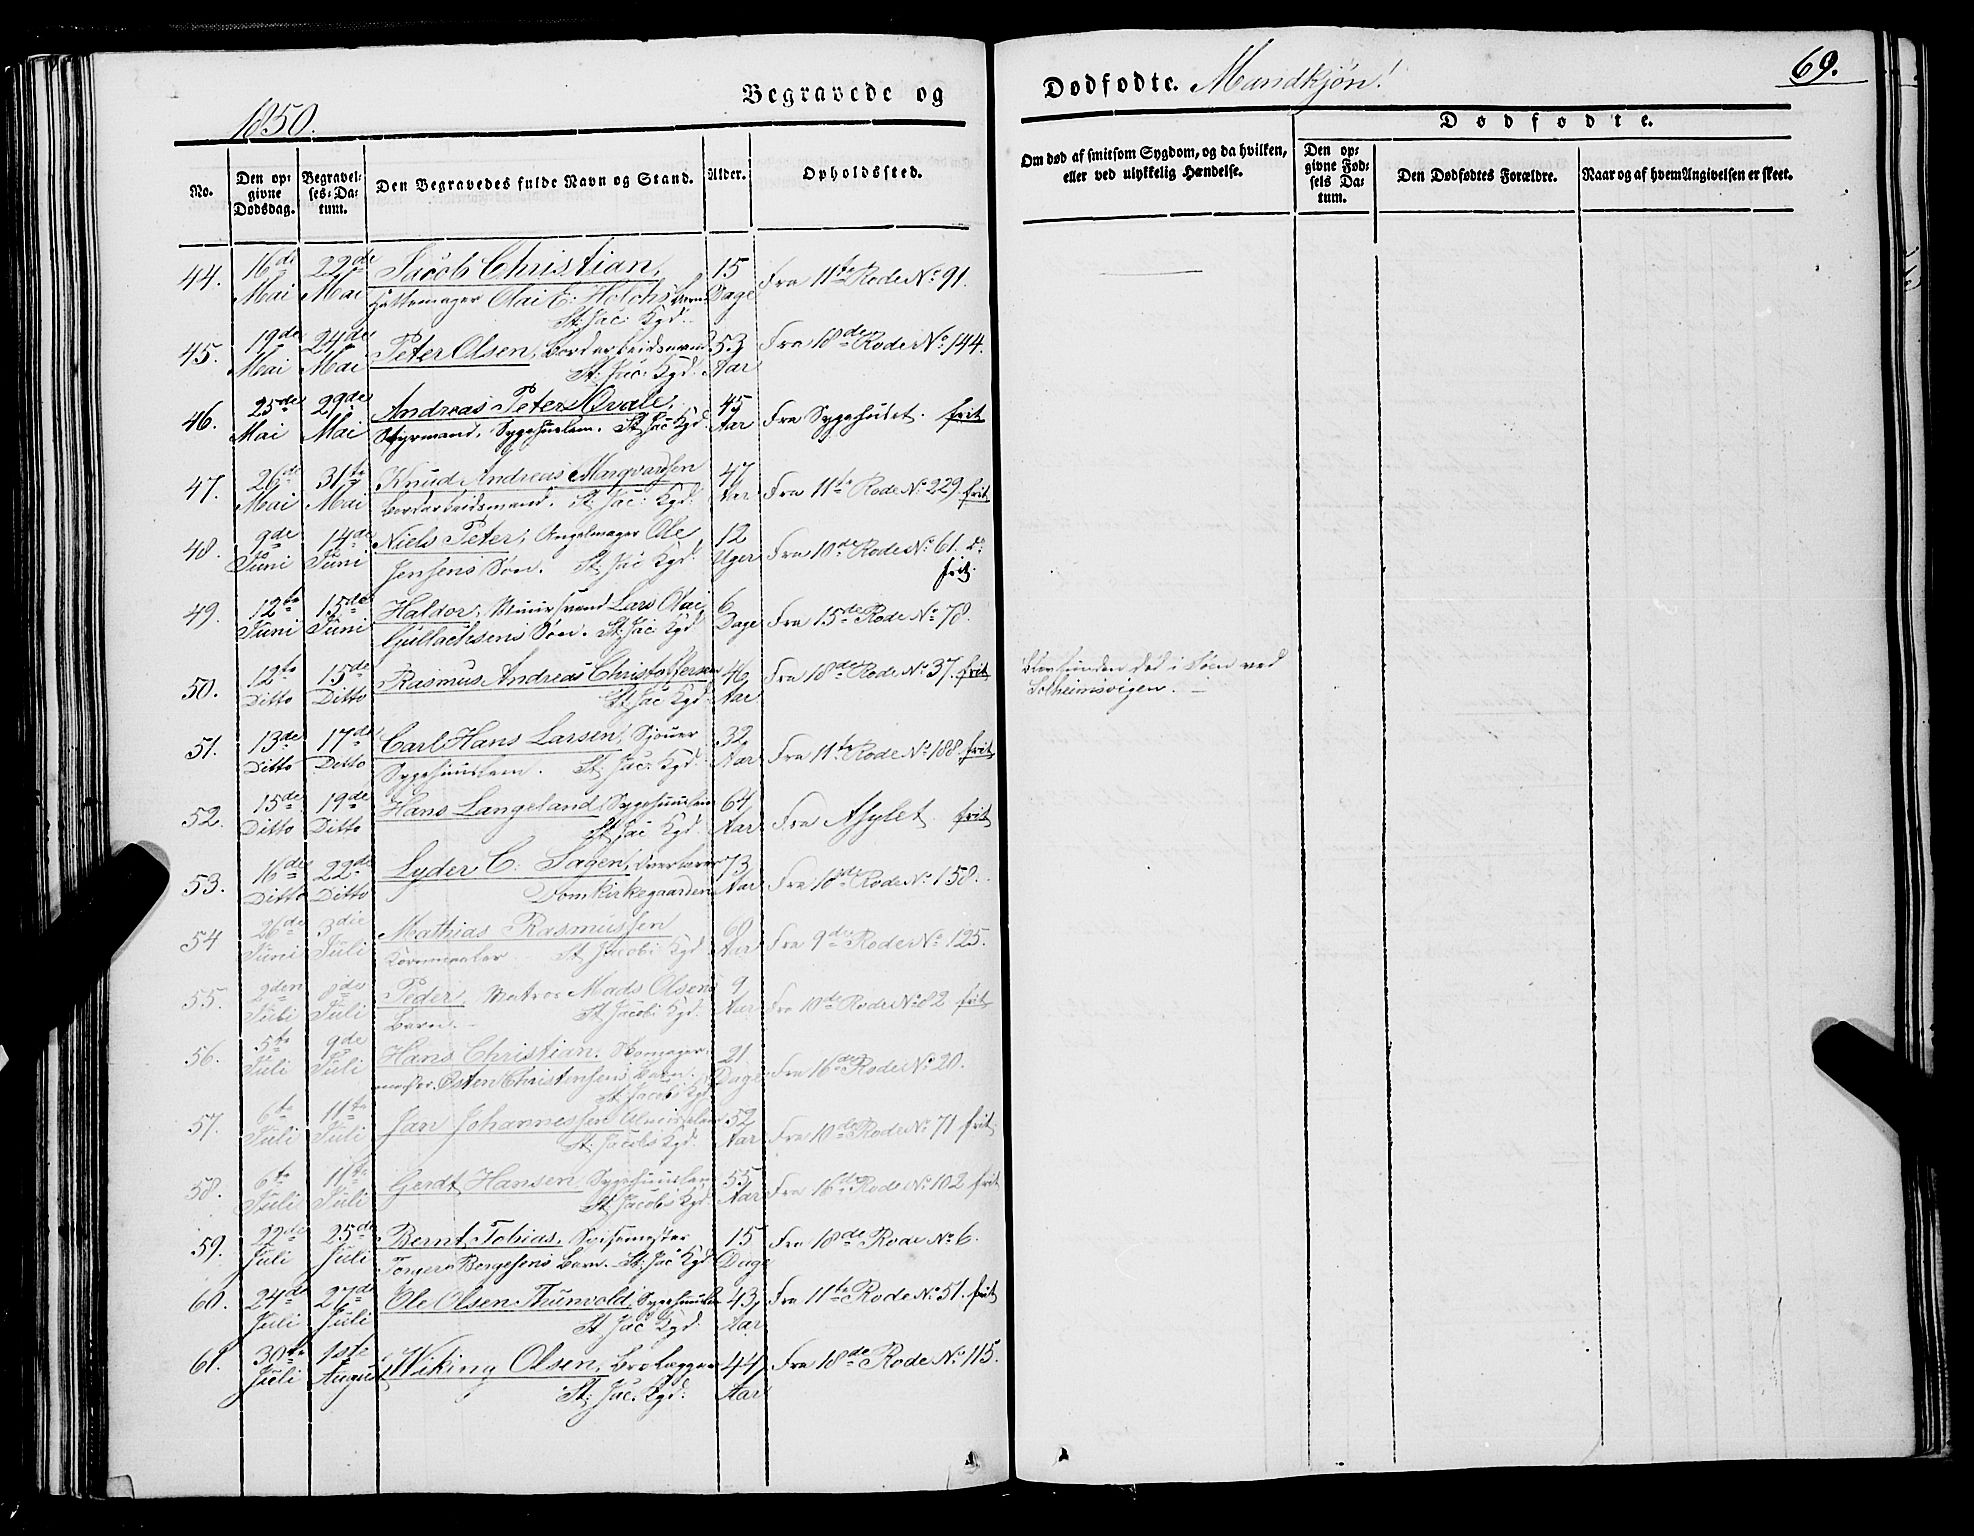 1850.
Begravede og
Dødfødte. Mandkjøn!
69.
No.
Den opgivne Dødsdag.
Begravelses-Datum.
Den Begravedes fulde Navn og Stand.
Alder.
Opholdssted.
Om død af smitsom Sygdom, og da hvilken, eller ved ulykkelig Hændelse.
Dødfødte.
Den opgivne Fødsels Datum.
Den Dødfødtes Forældre.
Naar og af hvem Angivelsen er skeet.
44. 16de Mai 22de Mai Jacob Christian, 15 Dage Fra 11te Rode No. 91.
Hattemager Olai E. Holchs Barn
St. Jac: Kgd.
45. 19de Mai 24de Mai Peter Olsen, Bordarbeidsmand 53 Aar Fra 18de Rode No. 144.
St. Jac: Kgd.
46. 25de Mai 29de Mai Andreas Peter Qvale, 45 Aar Fra Sygehuset. frit
Styrmand, Sygehuslem. St. Jac Kgd.
47. 26de Mai 31te Mai Knud Andreas Marqvardsen 47 Aar Fra 11te Rode No. 229 frit
Bordarbeidsmand. St. Jac: Kgd.
48. 9de Juni 14de Juni Niels Peter, Angelmager Ole 12 Uger Fra 10de Rode No. 61.
Jensens Søn. St. Jac Kgd. frit.
49. 12te Juni 15de Juni Haldor, Lars Olai 6 Dage Fra 15de Rode No. 78.
Gullachsens Søn. St. Jac: Kgd
50. 12te Ditto 15de Ditto Rasmus Andreas Christophersen 46 Aar Fra 18de Rode No. 37. frit Blev funden død i Søen ved
St. Jac Kgd Solheimsvigen.
51. 13de Ditto 17de Ditto Carl Hans Larsen, Sjouer 32 Aar Fra 11te Rode No. 188 frit
Sygehuuslem. St. Jac: Kgd.
52. 15de Ditto 19de Ditto Hans Langeland, Sygehuuslem 64 Aar Fra Asylet. frit
St. Jac Kgd.
53. 16de Ditto 22de Ditto Lyder C. Sagen, Overlærer 73 Aar Fra 18de Rode No. 158.
Domkirkegaarden
54 26de Juni 3die Juli Mathias Rasmussen 60 Aar Fra 9de Rode No. 125.
Kornmaaler St. Jacobi Kgd.
55. 2den Juli 8de Juli Peder, Matros Mads Olsens 9 Aar Fra 10de Rode No. 82 frit
Barn. St. Jacobi Kgd.
56. 5te Juli 9de Juli Hans Christian. Skomager- 21 Dage Fra 16de Rode No. 20.
mester Østen Christensens Barn.
St. Jacobs Kgd
57. 6te Juli 11te Juli Jan Johannessen 52 Aar Fra 10de Rode No. 71 frit.
St. Jacobs Kgd.
58. 6te Juli 11te Juli Gerdt Hansen, Sygehuuslem 55 Aar Fra 16de Rode No. 102 frit
St. Jacobs Kgd
59. 22de Juli 25de Juli Bernt Tobias, 15 Dage Fra 18de Rode No. 6.
Bergesens Barn. St. Jac Kgd
60. 24de Juli 27de Juli Ole Olsen Thunvold, Sygehuuslem 43 Aar Fra 11te Rode No. 51. frit
St. Jac Kgd.
61. 30te Juli 1ste August Wiking Olsen, Brolægger 44 Aar Fra 18de Rode No. 115.
St. Jac. Kgd.